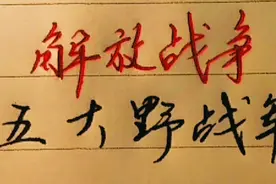 解放战争
五大野战军